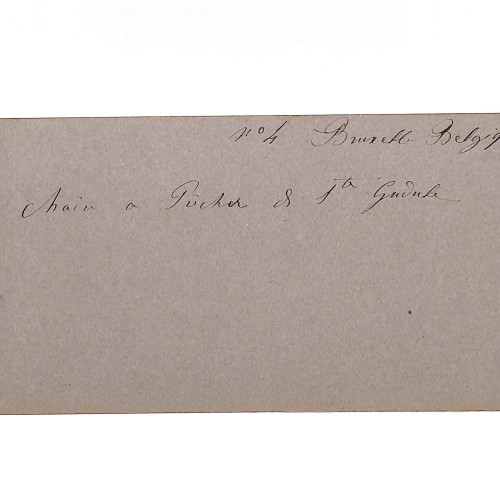 N° 4 Bruxelle Belgiq
Chaire a Prêcher de Ste Gudule